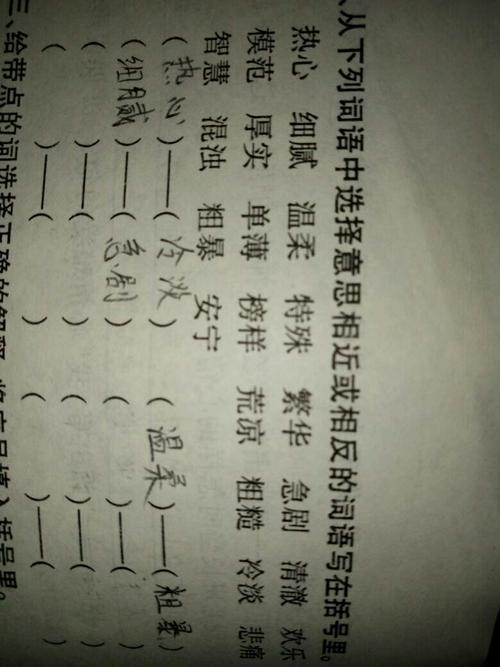 、从下列词语中选择意思相近或相反的词语写在括号里。
热心 细腻 温柔 特殊 繁华 急剧 清澈 欢乐
模范 厚实 单薄 榜样 荒凉 粗糙 冷淡 悲痛
智慧 混浊 粗暴 安宁
(热心)——(冷淡) (温柔)——(粗暴)
(细腻)——(急剧) ( )——( )
( )——( ) ( )——( )
( )——( ) ( )——( )
三、给带点的词选择正确的解释,将序号填入括号里。